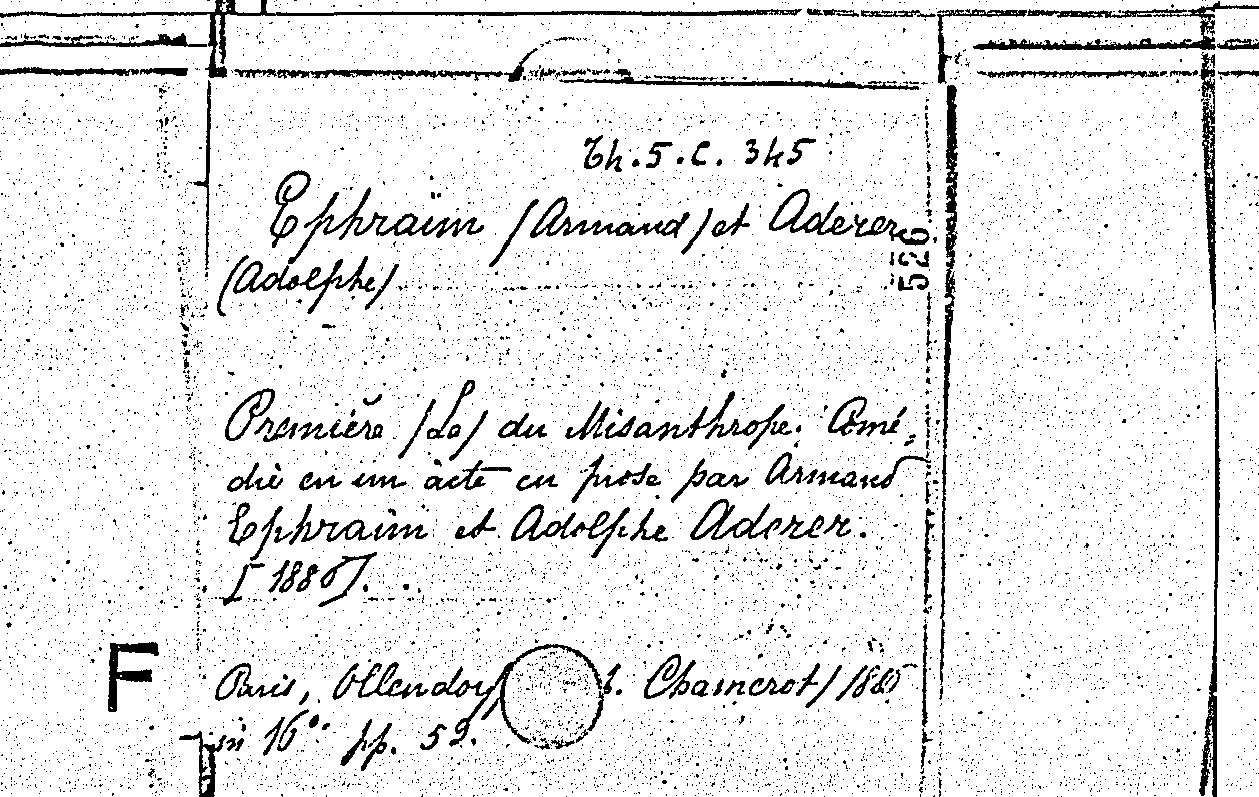 Th.5.C. 345
Ephraïm (Armand) et Aderer
(Adolphe)
526
Première (La) du Misanthrope. Comé-
die en un acte en prose par Armand
Ephraïm et Adolphe Aderer.
[1886].
F
Paris, Ollendorf t. Chamerot) 188
in 16°. pp. 59.